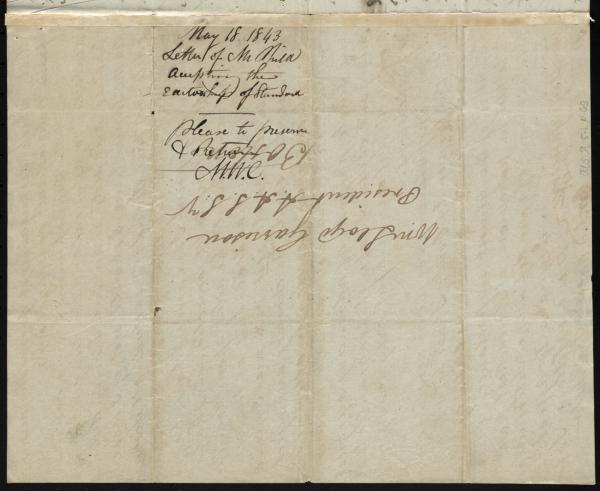 May 18. 1843
Letter of Mr Child
accepting the
Editorship of Standard
Please to preserve
& Return
M.W.C.
Wm Lloyd Garrison
President A. A. S. S.